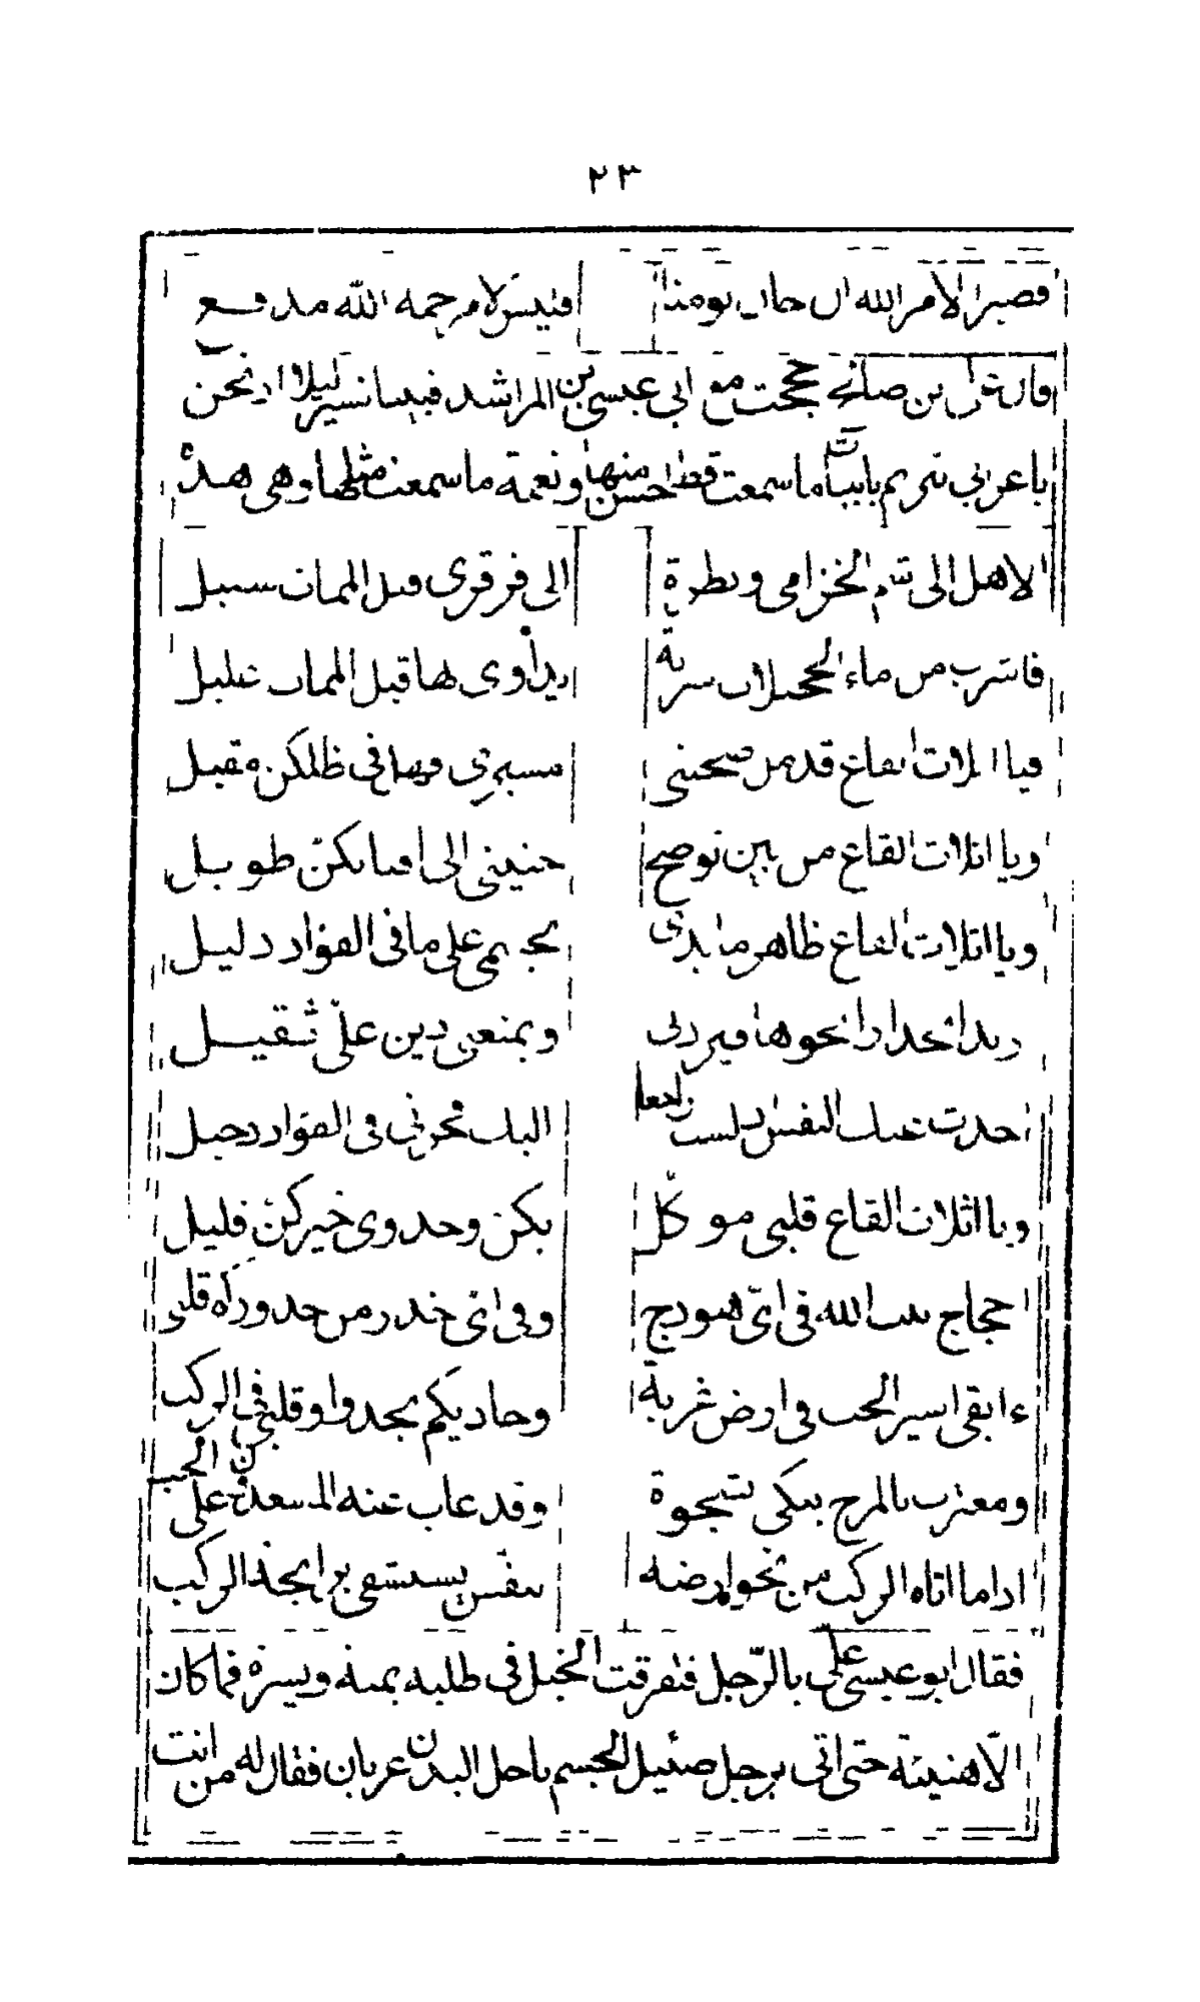 ٢٣
فصبرا لامر الله ان حان يومنا فليس لامر حمه الله مدفع
قال علي بن صالح حججت مع ابي عيسى بن الراشد فبينا نسير ليلا اذ نحن
باعربي يترنم بابيات ما سمعت قط احسن منها ونغمة ما سمعت مثلها وهي هذه
الا هل الى شم الخزامى ونظرة الى قرقرى قبل الممات سبيل
فاشرب من ماء الحجيلان شربة يداوى بها قبل الممات عليل
فيا اثلات القاع قد مل صحبتي مسيري فهل في ظلكن مقيل
ويا اثلات القاع من بين توضح حنيني الى افيائكن طويل
ويا اثلات القاع ظاهر ما بدى بجسمي على ما في الفؤاد دليل
اريد انحدارا نحوها فيردني ويمنعني دين علي ثقيل
احدث عنك النفس ان لست راجعا اليك فحزني في الفؤاد دخيل
ويا اثلات القاع قلبي موكل بكن وجدوى خيركن قليل
احجاج بيت الله في اي هودج وفي اي خدر من خدوركم قلبي
ءابقى اسير الحب في ارض غربة وحاديكم يحدوا وقلبي في الركب
ومغترب بالمرج يبكي بشجوة وقد غاب عنه المسعدون على الحب
اذا ما اتاه الركب من نحو ارضه تنفس يستشفي برائحة الركب
فقال ابو عيسى علي بالرجل فتفرقت الخيل في طلبه يمنة ويسرة فما كان
الا هنيئة حتى اتي برجل ضئيل الجسم ناحل البدن عريان فقال له من انت